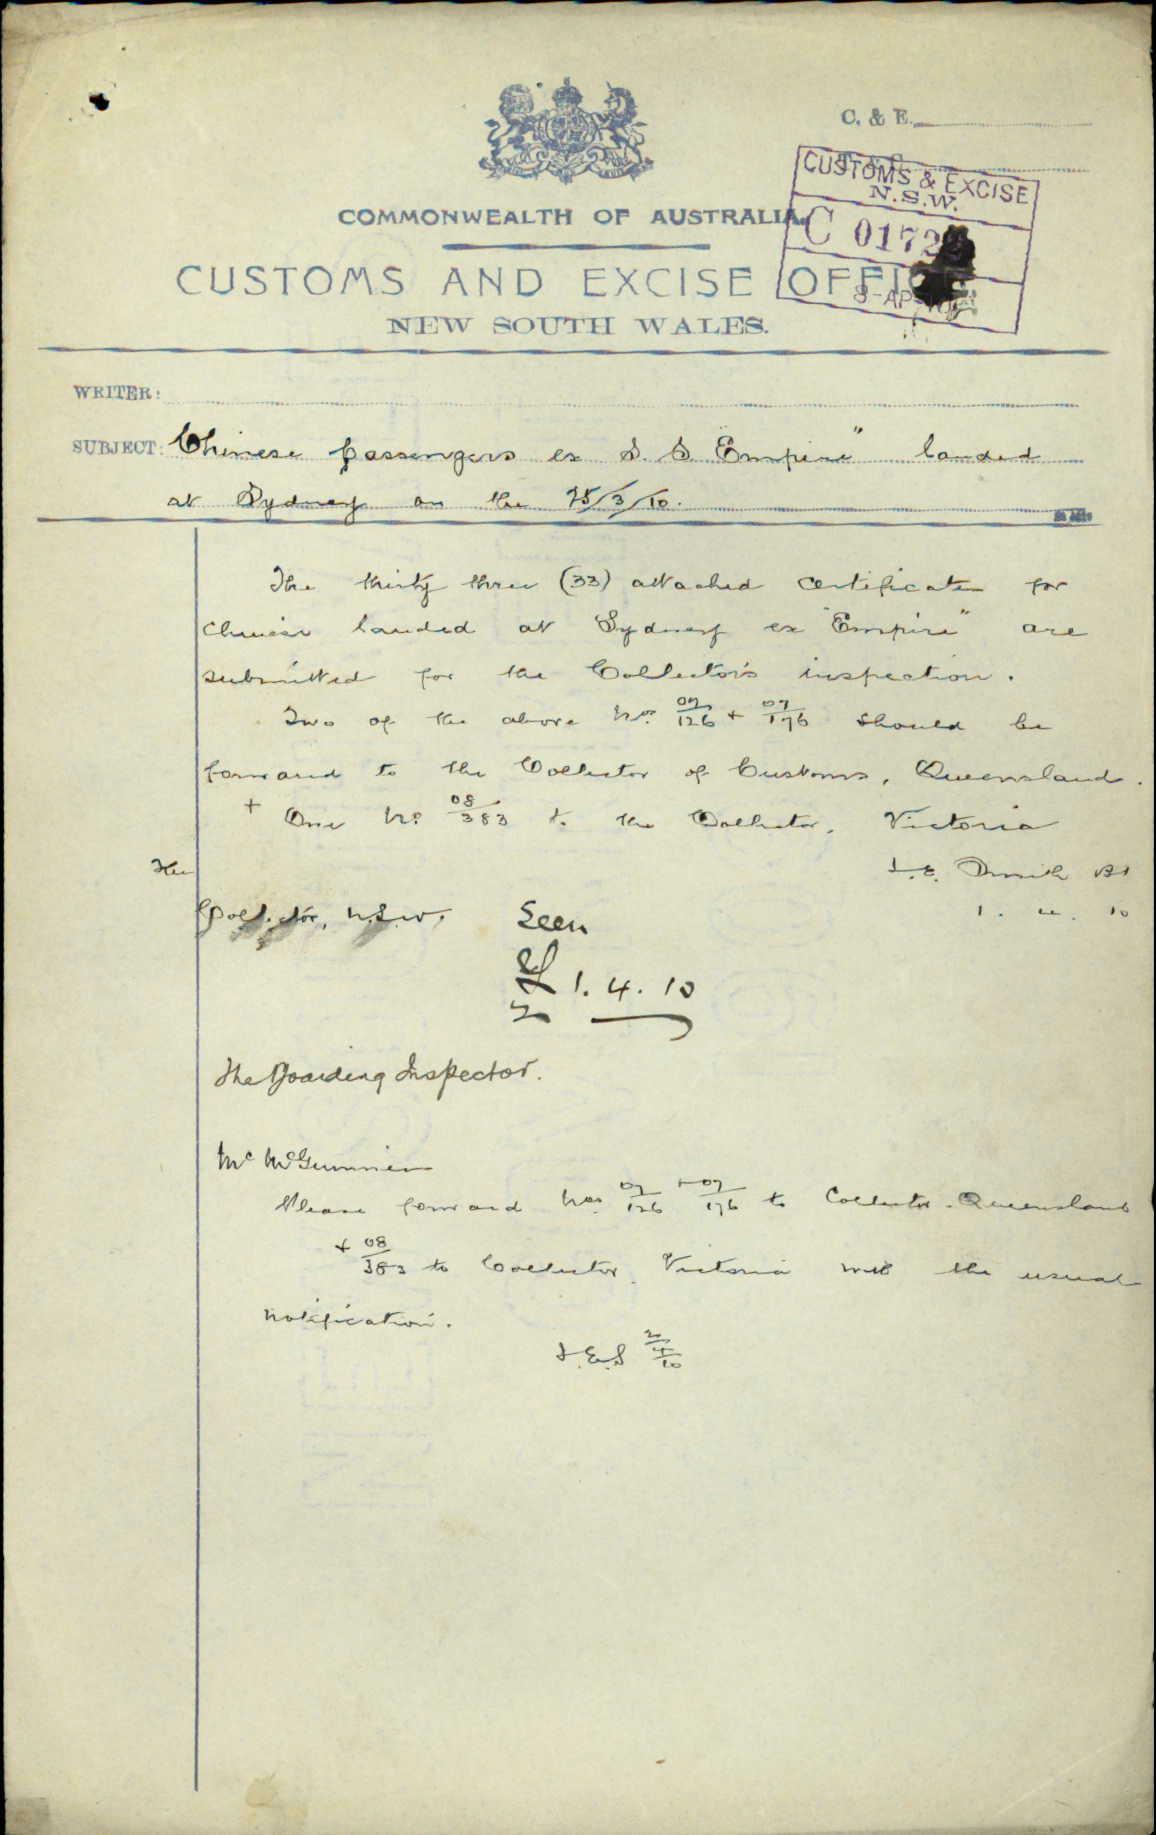 C. & E.
CUSTOMS & EXCISE
N.S.W.
C 0172
8-AP-10
COMMONWEALTH OF AUSTRALIA.
CUSTOMS AND EXCISE OFFICE
NEW SOUTH WALES.
WRITER:
SUBJECT: Chinese passengers ex S.S. "Empire" landed
at Sydney on the 25/3/10.
The thirty three (33) attached certificates for
Chinese landed at Sydney ex "Empire" are
submitted for the Collector's inspection.
Two of the above Nos. 07/126 + 07/176 should be
forward to the Collector of Customs, Queensland.
+ One No. 08/383 to the Collector, Victoria
J.E. Smith BI
1. 4. 10
The
Collector, N.S.W.
Seen
1. 4. 10
The Boarding Inspector.
Mr
Please forward Nos. 07/126 + 07/176 to Collector. Queensland
+ 08/383 to Collector Victoria with the usual
notification.
J.E.S 2/4/10